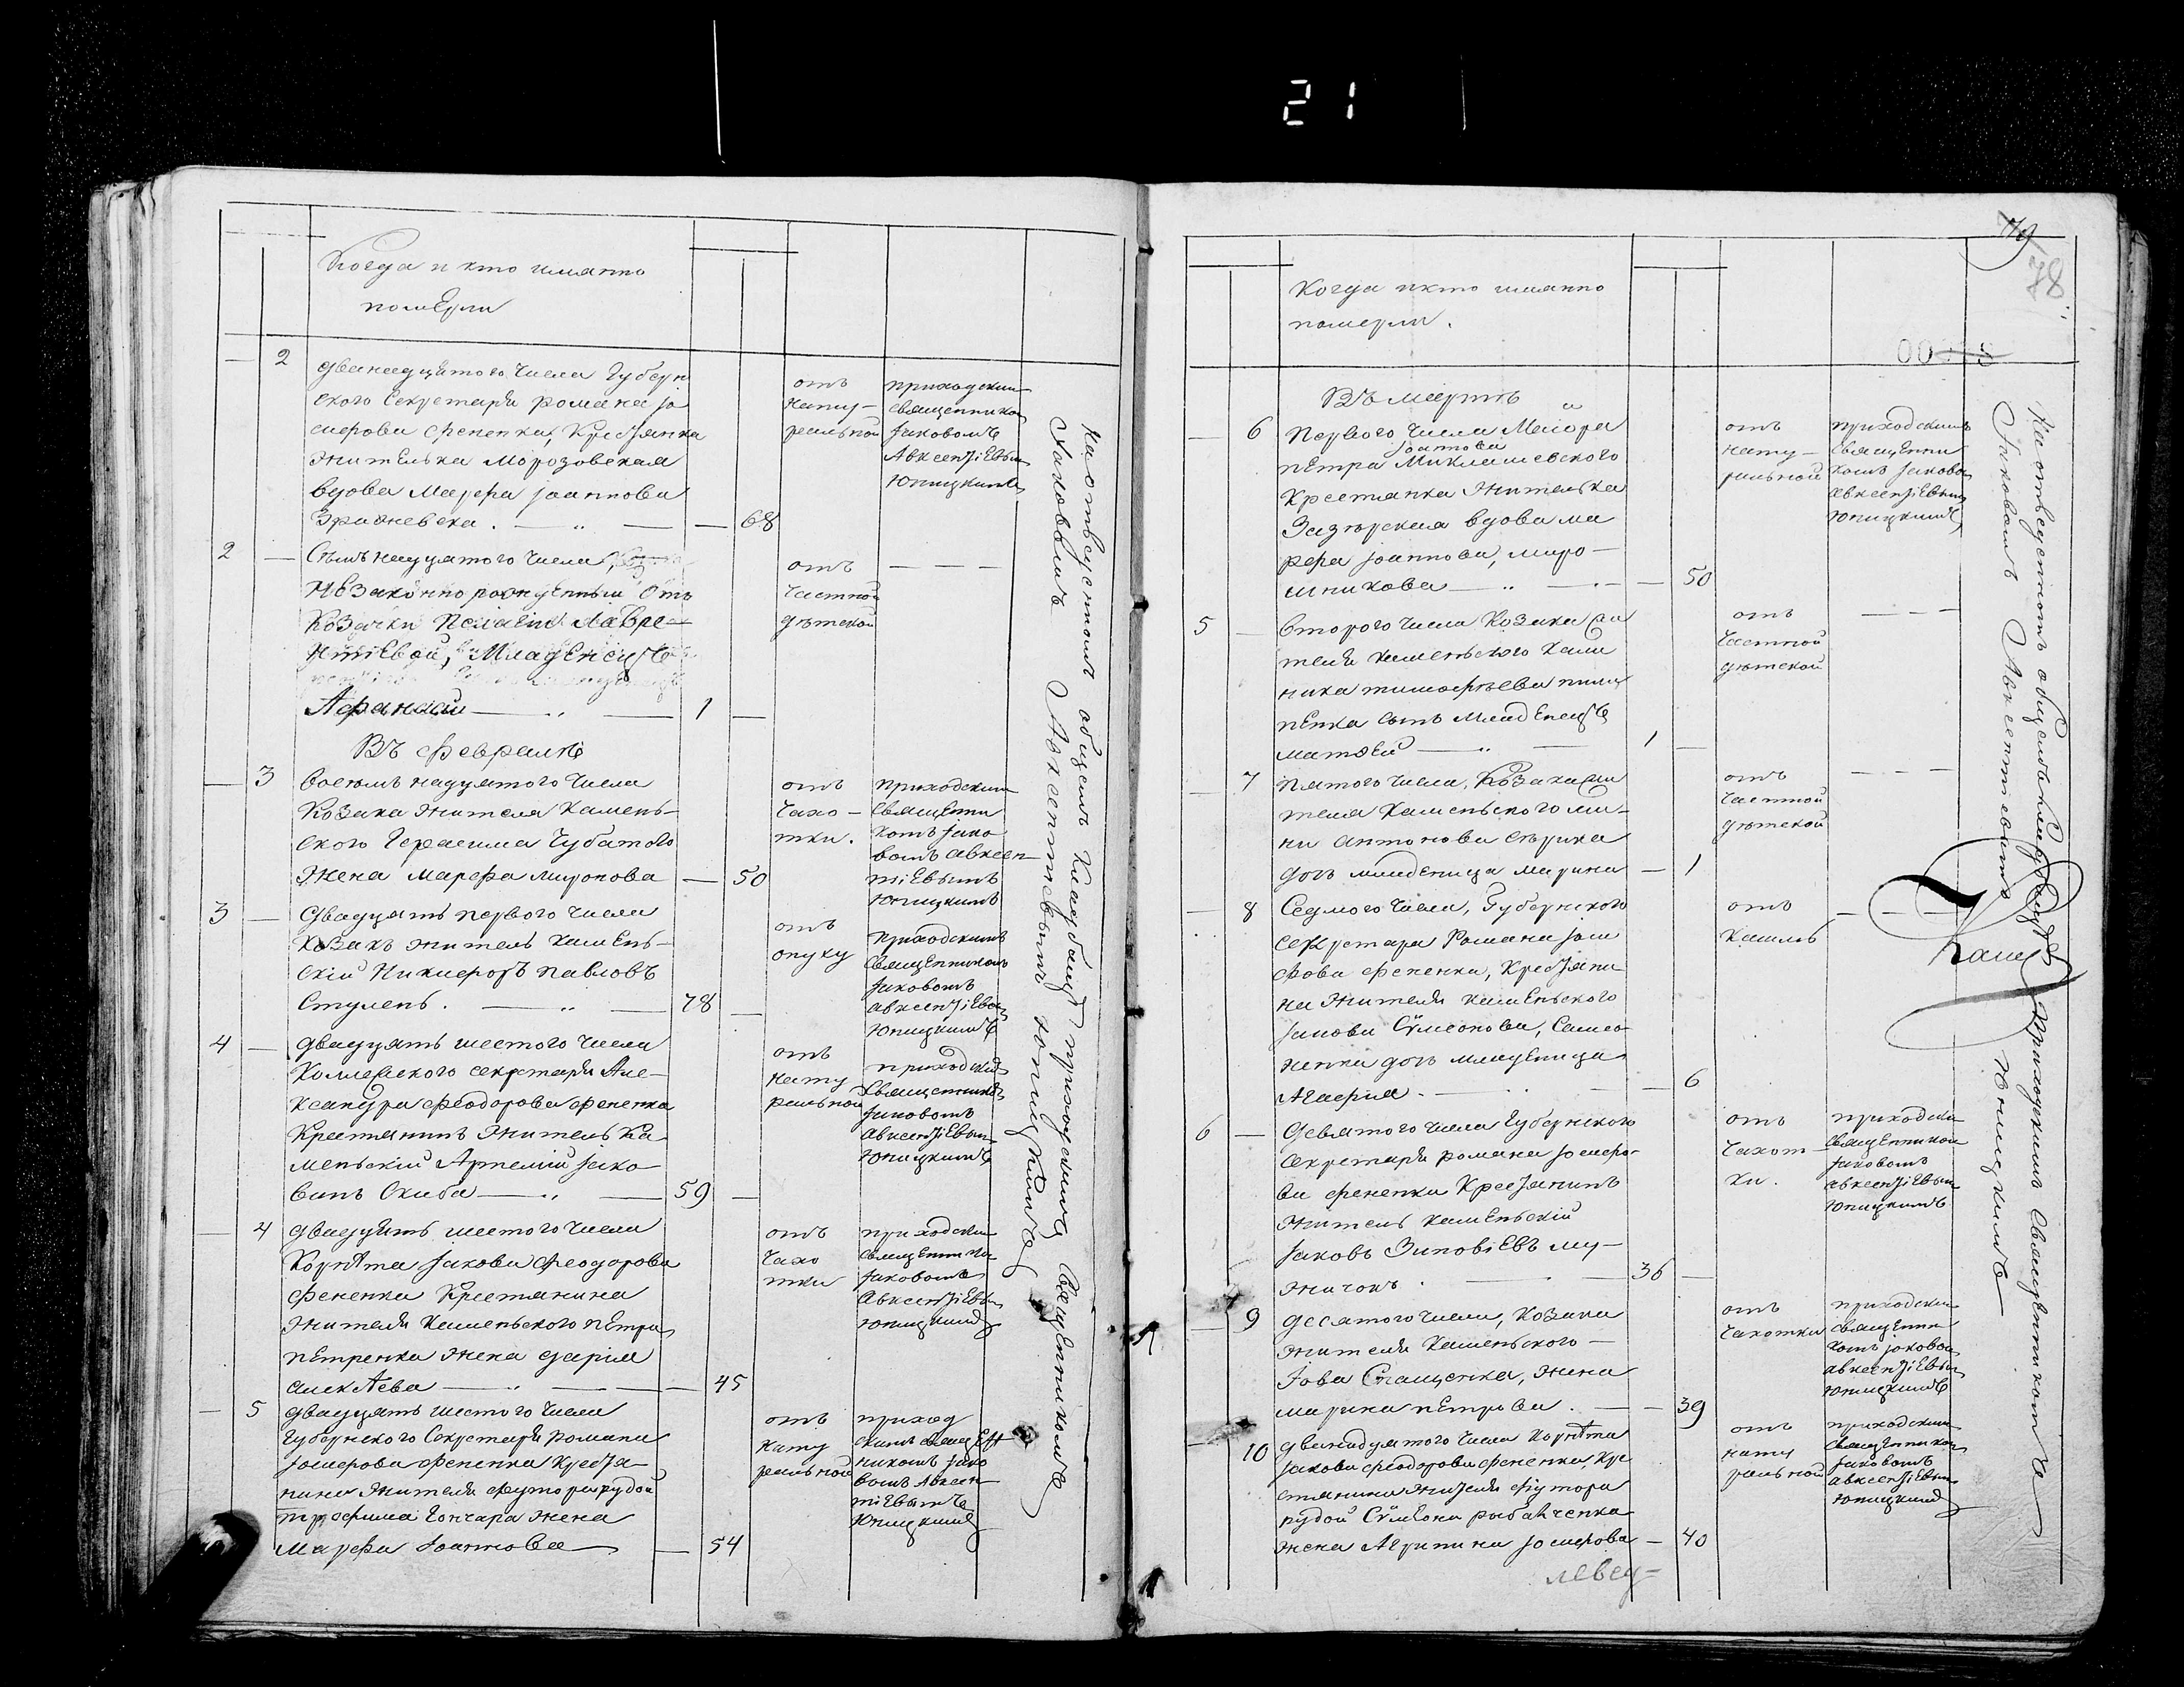 21
Когда и кто имянно
померли
2
двенадцятого числа Губерн
ского Секретаря романа Іо
сифова Фененка, Крестянка
жителька Морозовская
вдова Марфа Іоаннова
— 68
отъ
нату-
ральной
приходским
священником
Іаковомъ
Авксентіевым
Юницкимъ
2 —
Семънадцятого числа,
Незаконнорожденный отъ
Козачки Пелагіи Лавре-
нтіевой, Младенецъ
Афанасій — 1 —
отъ
частной
дѣтской
— — —
Въ февралѣ
— 3
восемънадцятого числа
Козака жителя Камень-
ского Герасима Чубатого
жена Марфа Миронова — 50
отъ
чахо-
тки.
приходским
священни
комъ Іако
вомъ авксен-
тіевымъ
Юницкимъ
3 —
Двадцять первого числа
козакъ житель камень-
скій Никифоръ Павловъ
Ступень. — 78 —
отъ
опуху
приходскимъ
священникомъ
Іаковомъ
авксентіевым
Юницкимъ
4 —
двадцять шестого числа
Коллежского секретаря Але-
ксандра Феодорова Фененка
Крестянинъ житель Ка-
меньскій Артемій Іако-
винъ Скиба — 59 —
отъ
нату
ральной
приходским
священником
Іаковомъ
авксентіевым
Юницкимъ
— 4
двадцять шестого числа
Корнѣта Іакова Феодорова
Фененка Крестянина
жителя Каменьского Петра
Петренка жена Дарія
алекѣева — 45
отъ
чахо
тки
приходским
священником
Іаковомъ
Авксентіевым
Юницким
— 5
двадцять шестого числа
Губернского Секретаря Романа
Іосифова Фененка Крестя-
нина жителя хутора рудой
трофима Гончара жена
Марфа Іоаннова — 54
отъ
нату
ральной
приход
скимъ свящ ен
никомъ Іако
вомъ Авксен-
тіевымъ
Юницким
На отведенномъ общемъ кладбищѣ приходскимъ Священникомъ
Іаковомъ Авксентіевымъ Юницкимъ
79
78
Когда и кто имянно
померли.
Въ мартѣ
— 6
Первого числа Маіора
Іоаннова
Петра Миклашевского
Крестянка жителька
вдова ма
рфа Іоаннова, миро-
шникова — 50
отъ
нату-
ральной
приходскимъ
священни
комъ Іаковом
авксентіевым
Юницкимъ
5 —
Второго числа Козака жи
теля каменьского
сынъ Младенецъ
матѳей — 1 —
отъ
частной
дѣтской
— — —
— 7
Пятого числа, Козака жи
теля Каменьского
антонова
дочь младеница Марина — 1
отъ
частной
дѣтской
— — —
— 8
Седмого числа, Губернского
секретаря Романа Іоси
фова Фененка, Крестяни
на жителя каменьского
Сумеонова, Самсо
ненка дочь младеница
Агафия. — 6
отъ
кашлю
— — —
6 —
Девятого числа Губернского
Секретаря романа Іосифо-
ва Фененка Крестянинъ
житель каменьскій
Іаковъ Зиновіевъ му-
жичокъ — 36 —
отъ
чахот
ки.
приходским
священником
Іаковомъ
авксентіевым
Юницкимъ
— 9
десятого числа, козака
жителя Каменьского —
Іова Спащенка, жена
марина Петрова. — 39
отъ
чахотки
приходским
священни
комъ Іаковом
авксентіевым
Юницкимъ
— 10
двенадцятого числа Корнѣта
Іакова Феодорова Фененка, Кре
стянина жителя хутора
рудой Сумеона
жена Агрипина Іосифова — 40
отъ
нату
ральной
приходским
священником
Іаковомъ
авксентіевым
Юницким
На отведенномъ общемъ кладбищѣ приходскимъ Священникомъ
Іаковомъ Авксентіевымъ Юницкимъ